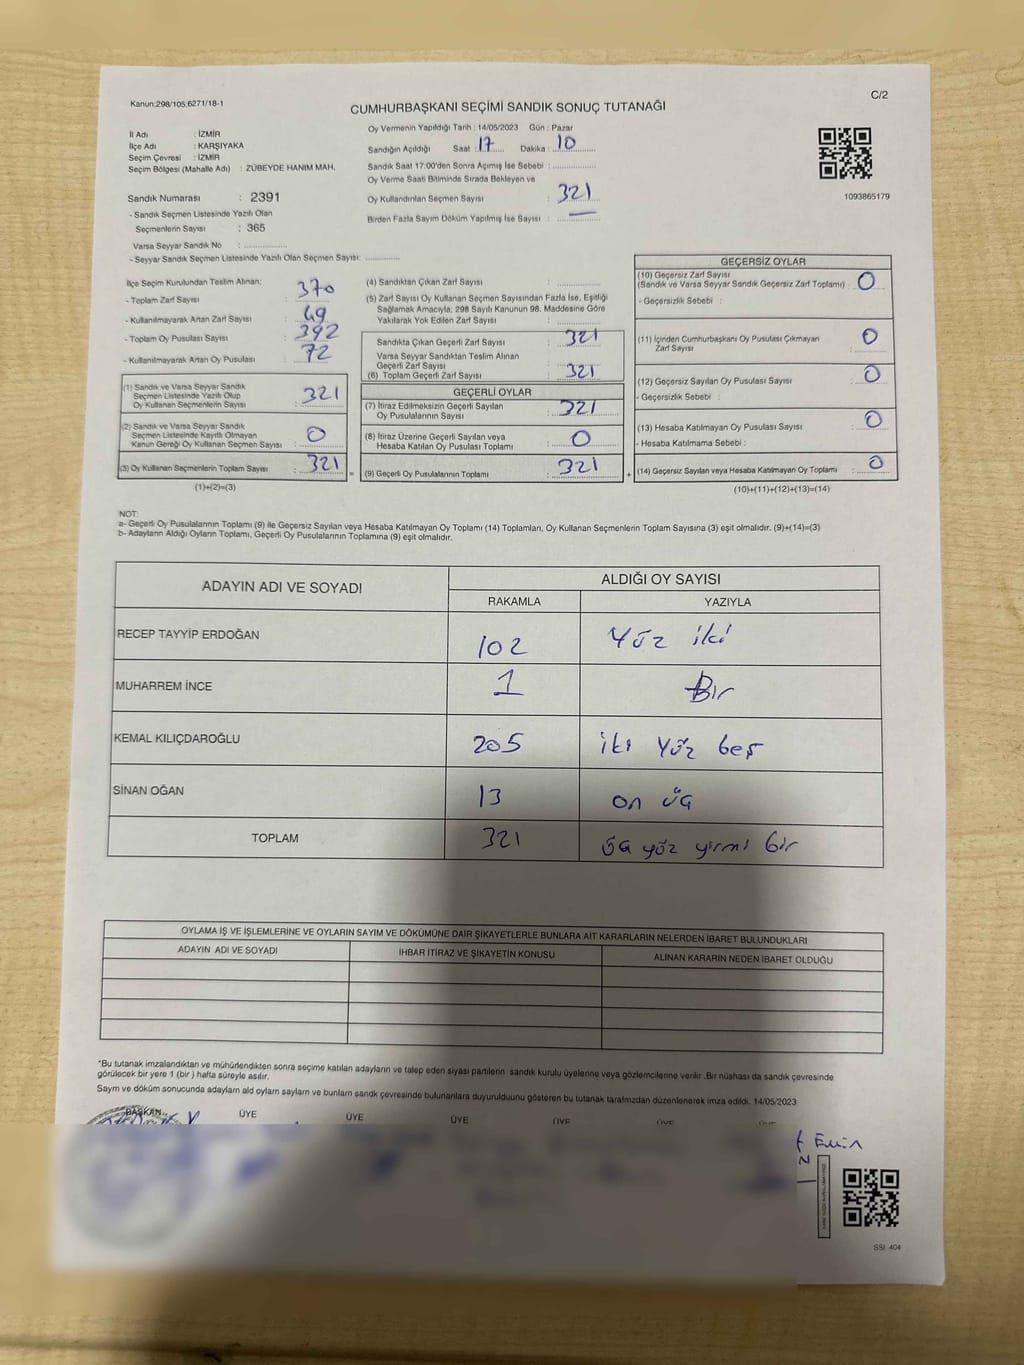 Kanun:298/105:6271/18-1
C/2
CUMHURBAŞKANI SEÇİMİ SANDIK SONUÇ TUTANAĞI
İl Adı : İZMİR
İlçe Adı : KARŞIYAKA
Seçim Çevresi : İZMİR
Seçim Bölgesi (Mahalle Adı) : ZÜBEYDE HANIM MAH.
Sandık Numarası : 2391
- Sandık Seçmen Listesinde Yazılı Olan
Seçmenlerin Sayısı : 365
Varsa Seyyar Sandık No : ..............
- Seyyar Sandık Seçmen Listesinde Yazılı Olan Seçmen Sayısı: ..............
Oy Vermenin Yapıldığı Tarih : 14/05/2023 Gün : Pazar
Sandığın Açıldığı Saat : 17 Dakika : 10
Sandık Saat 17:00'den Sonra Açımış İse Sebebi : ..............
Oy Verme Saati Bitiminde Sırada Bekleyen ve
Oy Kullandırılan Seçmen Sayısı : 321
Birden Fazla Sayım Döküm Yapılmış İse Sayısı : —
1093865179
İlçe Seçim Kurulundan Teslim Alınan;
- Toplam Zarf Sayısı : 370
- Kullanılmayarak Artan Zarf Sayısı : 49
- Toplam Oy Pusulası Sayısı : 392
- Kullanılmayarak Artan Oy Pusulası : 72
(1) Sandık ve Varsa Seyyar Sandık
Seçmen Listesinde Yazılı Olup
Oy Kullanan Seçmenlerin Sayısı : 321
(2) Sandık ve Varsa Seyyar Sandık
Seçmen Listesinde Kayıtlı Olmayan
Kanun Gereği Oy Kullanan Seçmen Sayısı : 0
(3) Oy Kullanan Seçmenlerin Toplam Sayısı : 321
(1)+(2)=(3)
(4) Sandıktan Çıkan Zarf Sayısı : ..............
(5) Zarf Sayısı Oy Kullanan Seçmen Sayısından Fazla İse, Eşitliği
Sağlamak Amacıyla; 298 Sayılı Kanunun 98. Maddesine Göre
Yakılarak Yok Edilen Zarf Sayısı : ..............
Sandıkta Çıkan Geçerli Zarf Sayısı : 321
Varsa Seyyar Sandıktan Teslim Alınan
Geçerli Zarf Sayısı :
(6) Toplam Geçerli Zarf Sayısı : 321
GEÇERLİ OYLAR
(7) İtiraz Edilmeksizin Geçerli Sayılan
Oy Pusulalarının Sayısı : 321
(8) İtiraz Üzerine Geçerli Sayılan veya
Hesaba Katılan Oy Pusulası Sayısı : 0
(9) Geçerli Oy Pusulalarının Toplamı : 321
GEÇERSİZ OYLAR
(10) Geçersiz Zarf Sayısı
(Sandık ve Varsa Seyyar Sandık Geçersiz Zarf Toplamı) : 0
- Geçersizlik Sebebi :
(11) İçinden Cumhurbaşkanı Oy Pusulası Çıkmayan
Zarf Sayısı : 0
(12) Geçersiz Sayılan Oy Pusulası Sayısı : 0
- Geçersizlik Sebebi :
(13) Hesaba Katılmayan Oy Pusulası Sayısı : 0
- Hesaba Katılmama Sebebi :
(14) Geçersiz Sayılan veya Hesaba Katılmayan Oy Toplamı : 0
(10)+(11)+(12)+(13)=(14)
NOT:
a- Geçerli Oy Pusulalarının Toplamı (9) ile Geçersiz Sayılan veya Hesaba Katılmayan Oy Toplamı (14) Toplamları, Oy Kullanan Seçmenlerin Toplam Sayısına (3) eşit olmalıdır. (9)+(14)=(3)
b- Adayların Aldığı Oyların Toplamı, Geçerli Oy Pusulalarının Toplamına (9) eşit olmalıdır.
ADAYIN ADI VE SOYADI
ALDIĞI OY SAYISI
RAKAMLA YAZIYLA
RECEP TAYYİP ERDOĞAN 102 Yüz iki
MUHARREM İNCE 1 Bir
KEMAL KILIÇDAROĞLU 205 iki Yüz beş
SİNAN OĞAN 13 on üç
TOPLAM 321 üç yüz yirmi bir
OYLAMA İŞ VE İŞLEMLERİNE VE OYLARIN SAYIM VE DÖKÜMÜNE DAİR ŞİKAYETLERLE BUNLARA AİT KARARLARIN NELERDEN İBARET BULUNDUKLARI
ADAYIN ADI VE SOYADI İHBAR İTİRAZ VE ŞİKAYETİN KONUSU ALINAN KARARIN NEDEN İBARET OLDUĞU
*Bu tutanak imzalandıktan ve mühürlendikten sonra seçime katılan adayların ve talep eden siyasi partilerin sandık kurulu üyelerine veya gözlemcilerine verilir .Bir nüshası da sandık çevresinde
görülecek bir yere 1 (bir ) hafta süreyle asılır.
Sayım ve döküm sonucunda adayların ald oyların sayları ve bunların sandk çevresinde bulunanlara duyurulduunu gösteren bu tutanak tarafmzdan düzenlenerek imza edildi. 14/05/2023
BAŞKAN ÜYE ÜYE ÜYE ÜYE ÜYE
Emin
SSI 404